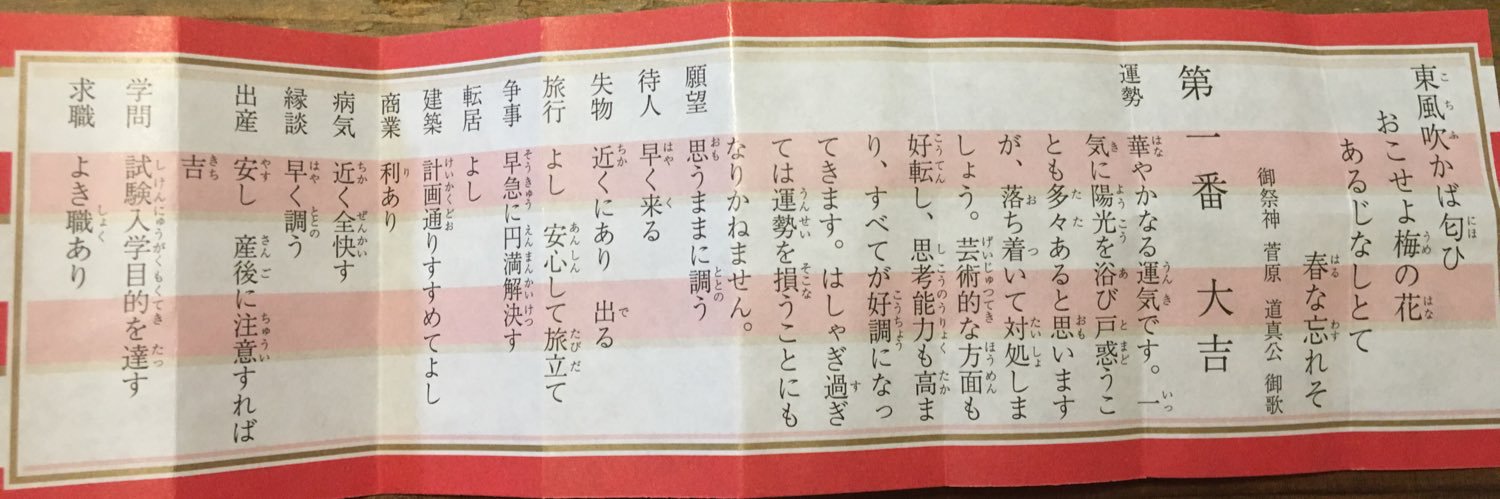 東風吹かば匂ひ
おこせよ梅の花
あるじなしとて
春な忘れそ
御祭神 菅原 道真公 御歌
第一番 大吉
運勢 華やかなる運気です。一
気に陽光を浴び戸惑うこ
とも多々あると思います
が、落ち着いて対処しま
しょう。芸術的な方面も
好転し、思考能力も高ま
り、すべてが好調になっ
てきます。はしゃぎ過ぎ
ては運勢を損うことにも
なりかねません。
願望 思うままに調う
待人 早く来る
失物 近くにあり 出る
旅行 よし 安心して旅立て
争事 早急に円満解決す
転居 よし
建築 計画通りすすめてよし
商業 利あり
病気 近く全快す
縁談 早く調う
出産 安し 産後に注意すれば
吉
学問 試験入学目的を達す
求職 よき職あり